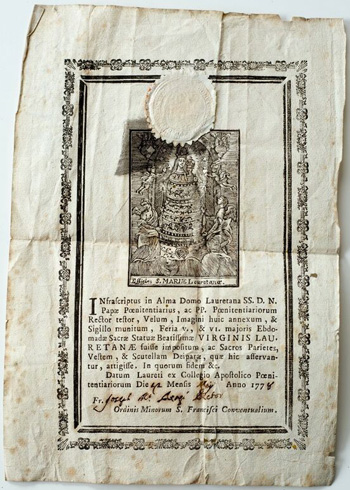 Effigies S. MARIÆ Lauretanæ.
Infrascriptus in Alma Domo Lauretana SS. D. N.
Papæ Pœnitentiarius, ac PP. Pœnitentiariorum
Rector testor, Velum, Imagini huic annexum, &
Sigillo munitum, Feria v., & vi. majoris Ebdo-
madæ Sacræ Statuæ Beatissimæ VIRGINIS LAU-
RETANÆ fuisse impositum, ac Sacros Parietes,
Vestem, & Scutellam Deiparæ, quæ hic asservan-
tur, attigisse. In quorum fidem &c.
Datum Laureti ex Collegio Apostolico Pœni-
tentiariorum Die Mensis Anno 1778
Fr. Joseph
Ordinis Minorum S. Francisci Conventualium.